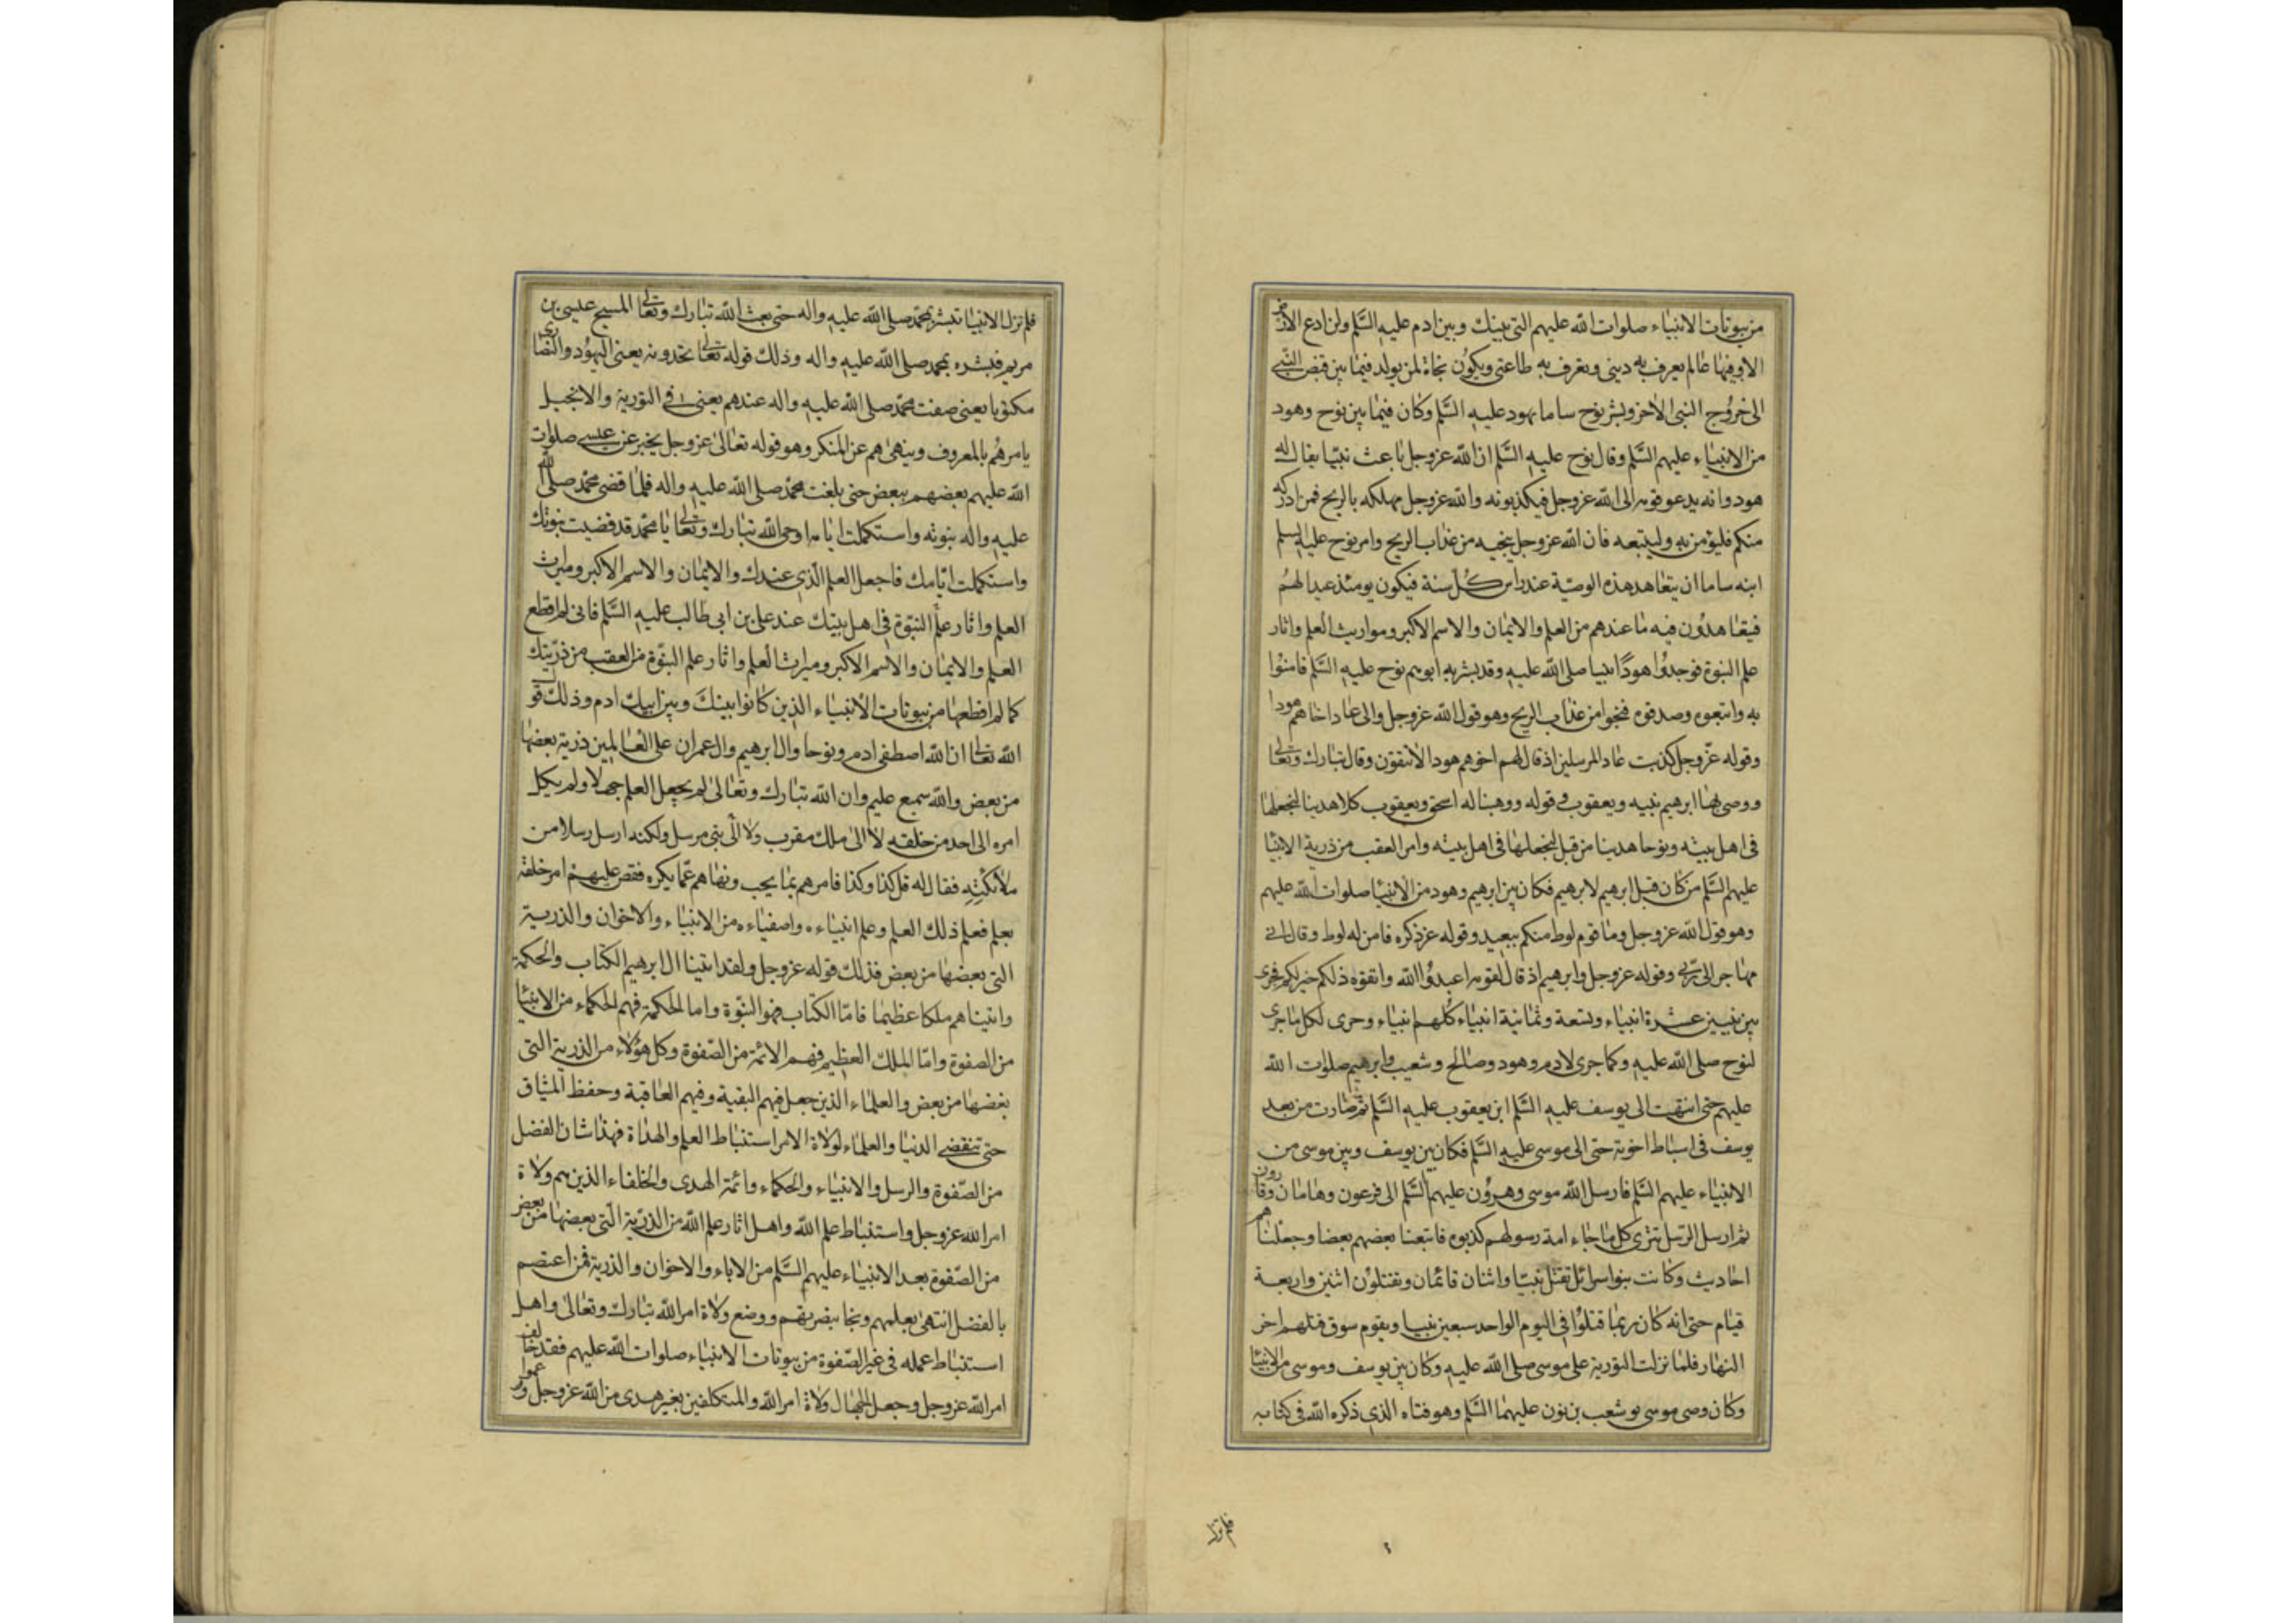 من بيوتات الانبياء صلوات الله عليهم التى بينك وبين ادم عليه السلم ولن ادع الارض
الا وفيها عالم يعرف به دينى وتعرف به طاعتى ويكون نجاة لمن يولد فيما بين قبض النبى
الى خروج النبى الاخر وبشر نوح ساما بهود عليه السلم وكان فيما بين نوح وهود
من الانبياء عليهم السلم وقال نوح عليه السلم ان الله عز وجل باعث نبيا يقال له
هود وانه يدعو قومه الى الله عز وجل فيكذبونه والله عز وجل مهلكه بالريح فمن ادركه
منكم فليؤمن به وليتبعه فان الله عز وجل ينجيه من عذاب الريح وامر نوح عليه السلم
ابنه ساما ان يتعاهد هذه الوصية عند راس كل سنة فيكون يومئذ عيدا لهم
فيتعاهدون فيه ما عندهم من العلم والايمان والاسم الاكبر ومواريث العلم واثار
علم النبوة فوجدوا هودا نبيا صلى الله عليه وقد بشر به ابوهم نوح عليه السلم فامنوا
به واتبعوه وصدقوه فنجوا من عذاب الريح وهو قول الله عز وجل والى عاد اخاهم هودا
وقوله عز وجل كذبت عاد المرسلين اذ قال لهم اخوهم هود الا تتقون وقال تبارك وتعالى
ووصى بها ابرهيم نبيه ويعقوب وقوله ووهبنا له اسحق ويعقوب كلا هدينا لنجعلها
فى اهل بيته ونوحا هدينا من قبل لنجعلها فى اهل بيته وامر العقب من ذرية الانبيا
عليهم السلم من كان قبل ابرهيم لابرهيم فكان بين ابرهيم وهود من الانبيا صلوات الله عليهم
وهو قول الله عز وجل وما قوم لوط منكم ببعيد وقوله عز ذكره فامن له لوط وقال انى
مهاجر الى ربى وقوله عز وجل وابرهيم اذ قال لقومه اعبدوا الله واتقوه ذلكم خير لكم فجرى
بين نبيين عشرة انبياء وتسعة وثمانية انبياء كلهم انبياء وجرى لكل ما جرى
لنوح صلى الله عليه وكما جرى لادم وهود وصالح وشعيب وابرهيم صلوات الله
عليهم حتى انتهت الى يوسف عليه السلم ابن يعقوب عليه السلم ثم صارت من بعد
يوسف فى اسباط اخوته حتى الى موسى عليه السلم فكان بين يوسف وبين موسى من
الانبياء عليهم السلم فارسل الله موسى وهرون عليهم السلم الى فرعون وهامان وقارون
ثم ارسل الرسل تترى كل ما جاء امة رسولهم كذبوه فاتبعنا بعضهم بعضا وجعلناهم
احاديث وكانت بنو اسرائل تقتل نبيا واثنان قائمان وتقتلون اثنين واربعة
قيام حتى انه كان ربما قتلوا فى اليوم الواحد سبعين نبيا ويقوم سوق قتلهم اخر
النهار فلما نزلت التورية على موسى صلى الله عليه وكان بين يوسف وموسى من الانبيا
وكان وصى موسى يوشعب بن نون عليهما السلم وهو فتاه الذى ذكره الله فى كتابه
فلم تزل
فلم تزل الانبيا تبشر بمحمد صلى الله عليه واله حتى بعث الله تبارك وتعالى المسيح عيسى بن
مريم فبشره بمحمد صلى الله عليه واله وذلك قوله تعالى تجدونه يعنى اليهود والنصارى
مكتوبا يعنى صفت محمد صلى الله عليه واله عندهم يعنى فى التورية والانجيل
يامرهم بالمعروف وينهى هم عن المنكر وهو قوله تعالى عز وجل يخبر عن عيسى صلوات
الله عليهم بعضهم ببعض حتى بلغت محمد صلى الله عليه واله فلما قضى محمد صلى الله
عليه واله نبوته واستكملت ايامه اوحى الله تبارك وتعالى يا محمد قد قضيت نبوتك
واستكملت ايامك فاجعل العلم الذى عندك والايمان والاسم الاكبر وميراث
العلم واثار علم النبوة فى اهل بيتك عند على بن ابى طالب عليه السلم فانى لم اقطع
العلم والايمان والاسم الاكبر وميراث العلم واثار علم النبوة من العقب من ذريتك
كما لم اقطعها من بيوتات الانبياء الذين كانوا بينك وبين ابيك ادم وذلك قول
الله تعالى ان الله اصطفى ادم ونوحا وال ابرهيم وال عمران على العالمين ذرية بعضها
من بعض والله سميع عليم وان الله تبارك وتعالى لم يجعل العلم جهلا ولم يكل
امره الى احد من خلقه لا الى ملك مقرب ولا الى نبى مرسل ولكنه ارسل رسلا من
ملائكته فقال له قل كذا وكذا فامرهم بما يحب ونهاهم عما يكره فقص عليهم امر خلقه
بعلم فعلم ذلك العلم وعلم انبياءه واصفياءه من الانبياء والاخوان والذرية
التى بعضها من بعض فذلك قوله عز وجل ولقد اتينا ال ابرهيم الكتاب والحكمة
واتيناهم ملكا عظيما فاما الكتاب فهو النبوة واما الحكمة فهم الحكماء من الانبيا
من الصفوة واما الملك العظيم فهم الائمة من الصفوة وكل هؤلاء من الذرية التى
بعضها من بعض والعلماء الذين جعل فيهم البقية وفيهم العاقبة وحفظ الميثاق
حتى تنقضى الدنيا والعلماء لولاة الامر استنباط العلم والهداة فهذا شان الفضل
من الصفوة والرسل والانبياء والحكماء وائمة الهدى والخلفاء الذين هم ولاة
امر الله عز وجل واستنباط علم الله واهل اثار علم الله من الذرية التى بعضها من بعض
من الصفوة بعد الانبياء عليهم السلم من الاباء والاخوان والذرية فمن اعتصم
بالفضل انتهى بعلمهم ونجا بنصرتهم ووضع ولاة امر الله تبارك وتعالى واهل
استنباط عمله فى غير الصفوة من بيوتات الانبياء صلوات الله عليهم فقد خالف
امر الله عز وجل وجعل الجهال ولاة امر الله والمتكلفين بغير هدى من الله عز وجل